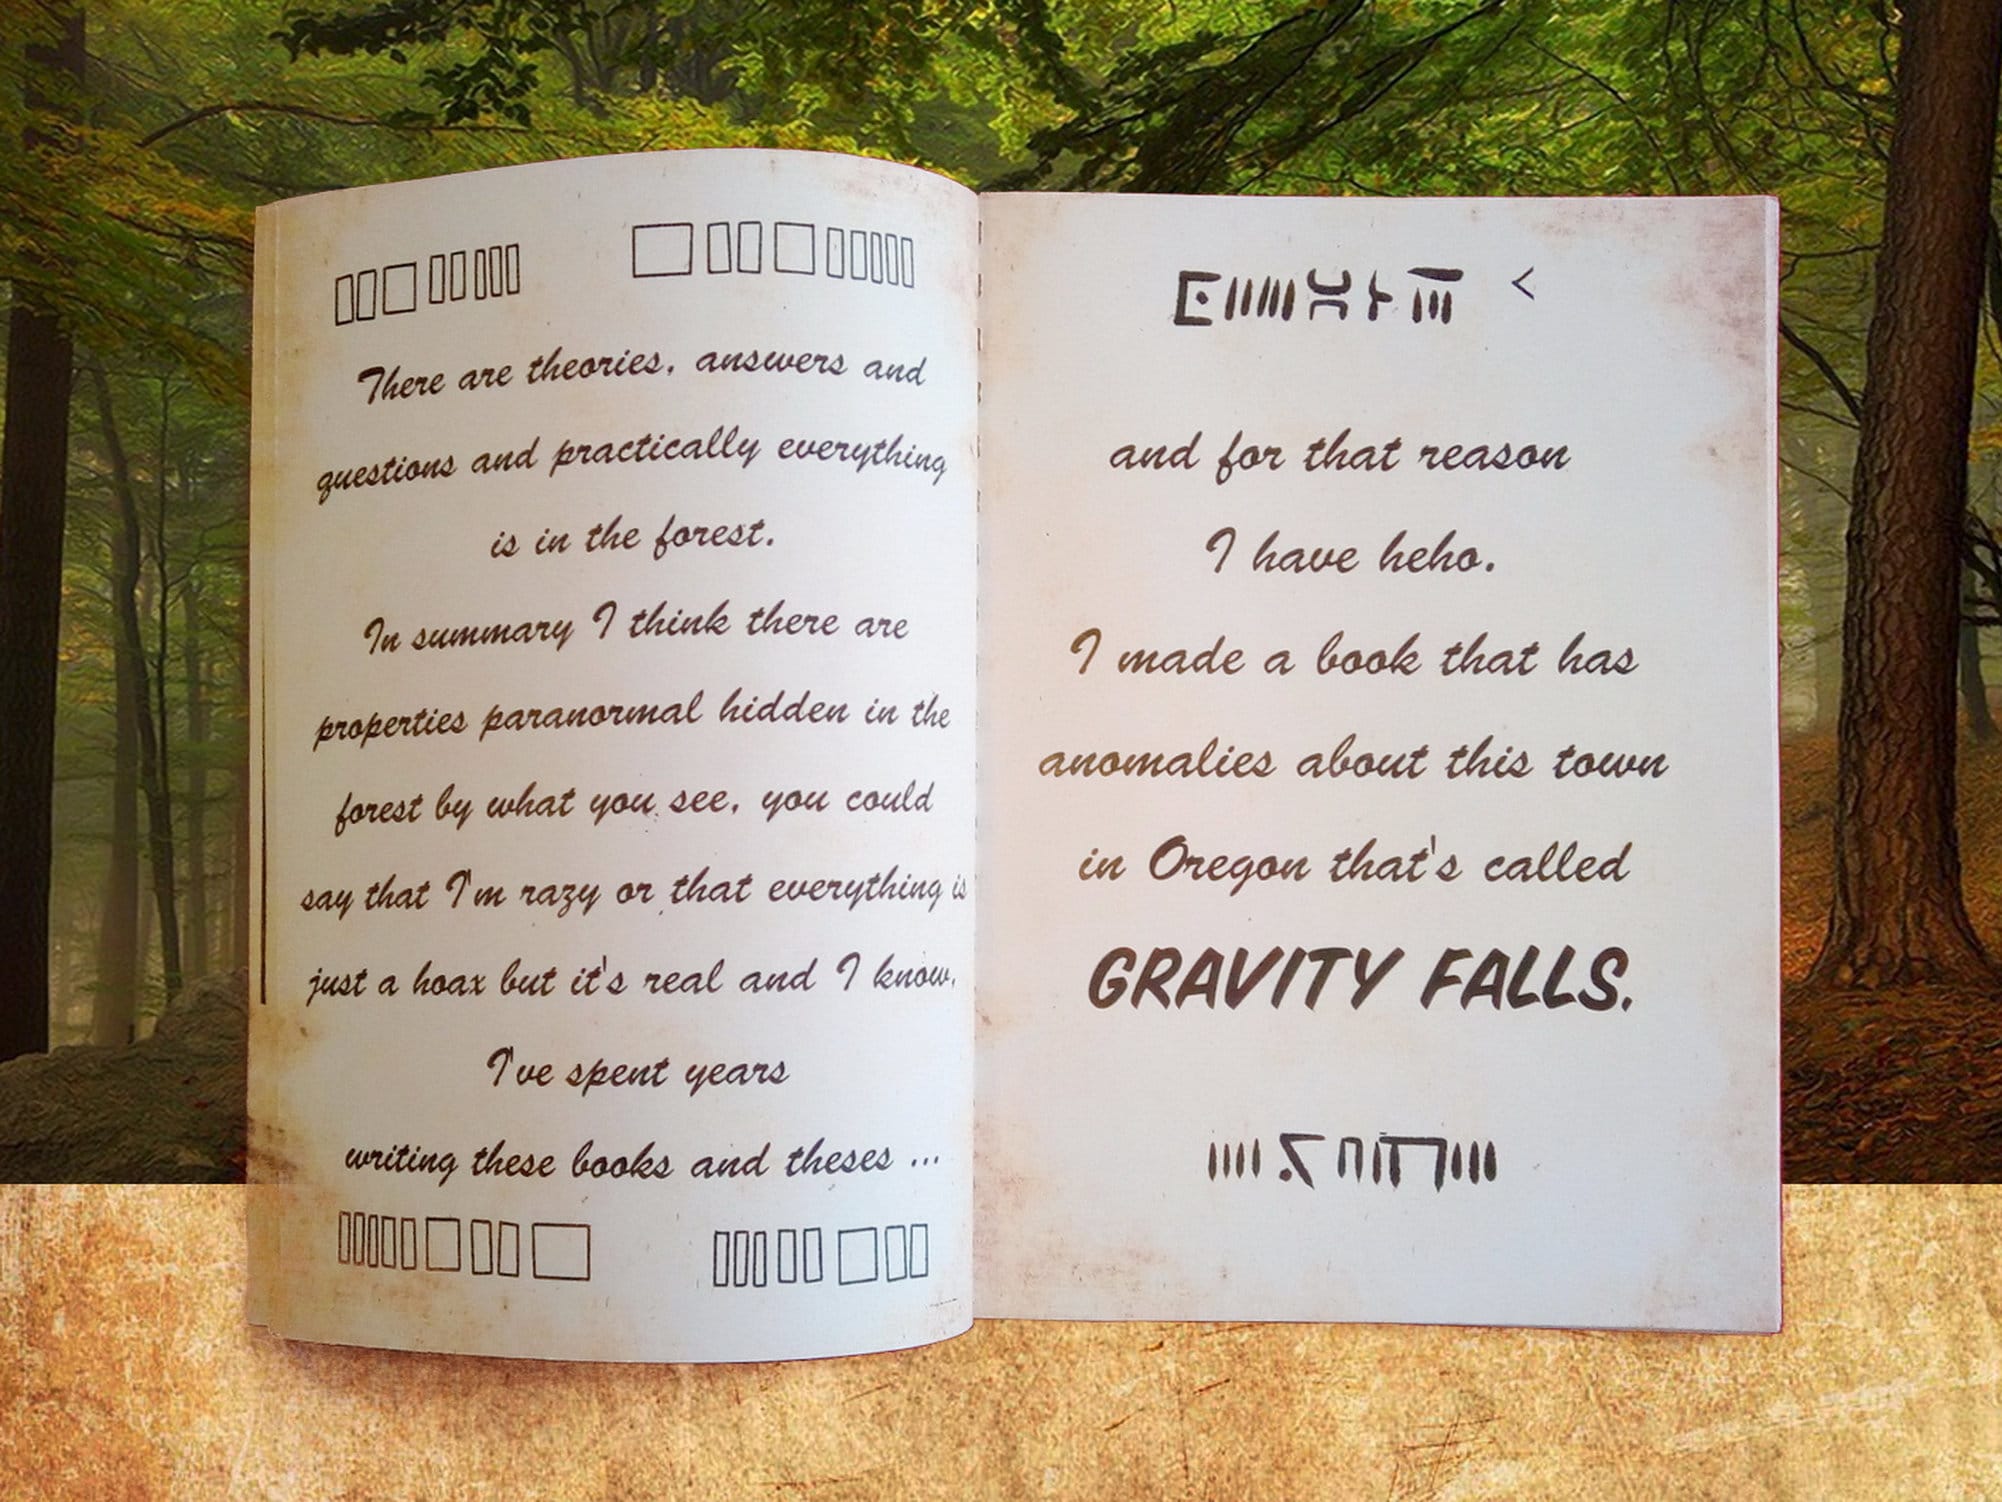 There are theories, answers and
questions and practically everything
is in the forest.
In summary I think there are
properties paranormal hidden in the
forest by what you see, you could
say that I'm razy or that everything is
just a hoax but it's real and I know,
I've spent years
writing these books and theses ...
and for that reason
I have heho.
I made a book that has
anomalies about this town
in Oregon that's called
GRAVITY FALLS.